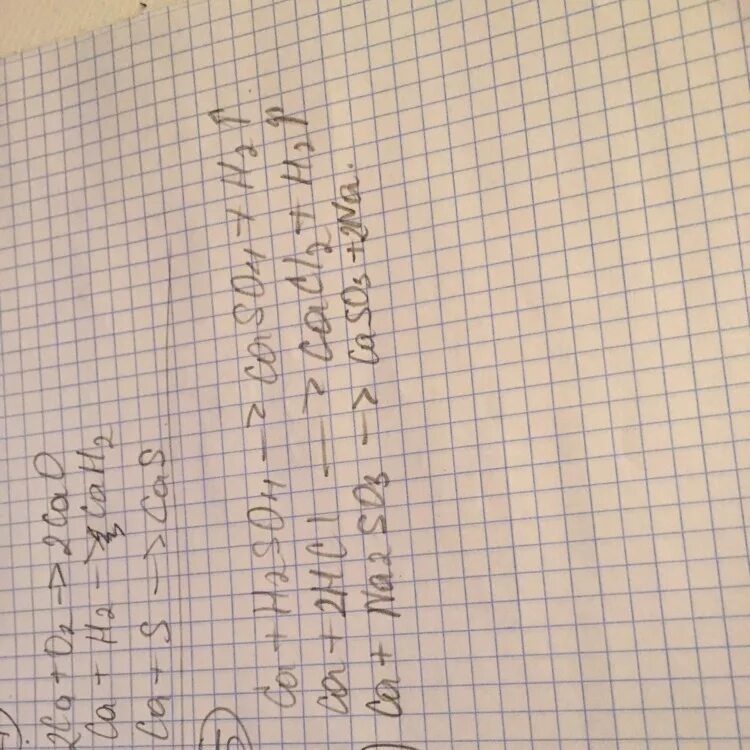 2Ca + O2 -> 2CaO
Ca + H2 -> CaH2
Ca + S -> CaS
Ca + H2SO4 -> CaSO4 + H2↑
Ca + 2HCl -> CaCl2 + H2↑
Ca + Na2SO3 -> CaSO3 + 2Na.